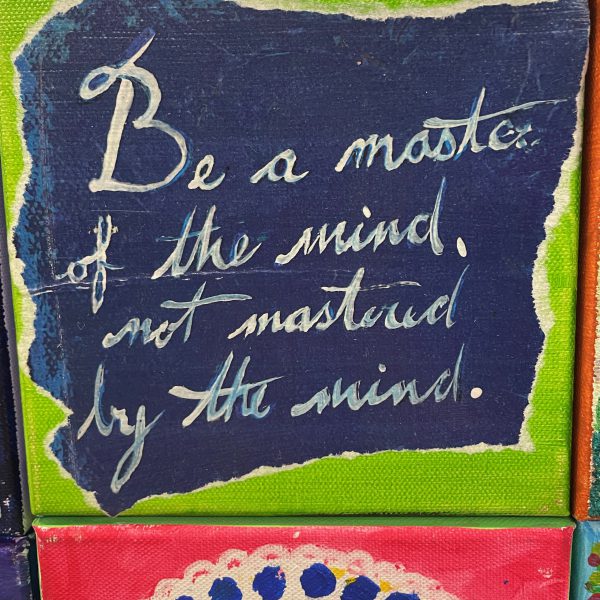 Be a master
of the mind,
not mastered
by the mind.